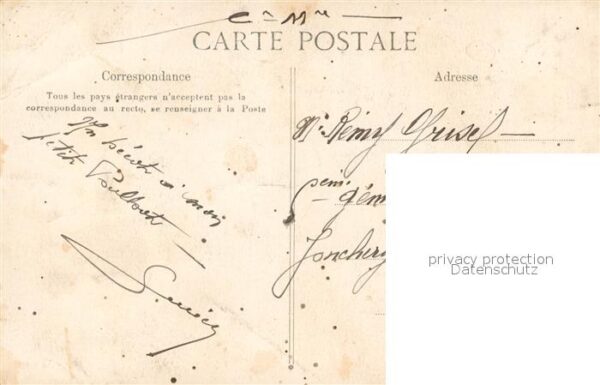 Cce Mre
CARTE POSTALE
Correspondance
Tous les pays étrangers n'acceptent pas la
correspondance au recto, se renseigner à la Poste
Un bécot à mon
petit Poulbot
Adresse
Mr Rémy Grisel
6eme Géni
Jonchery
privacy protection
Datenschutz